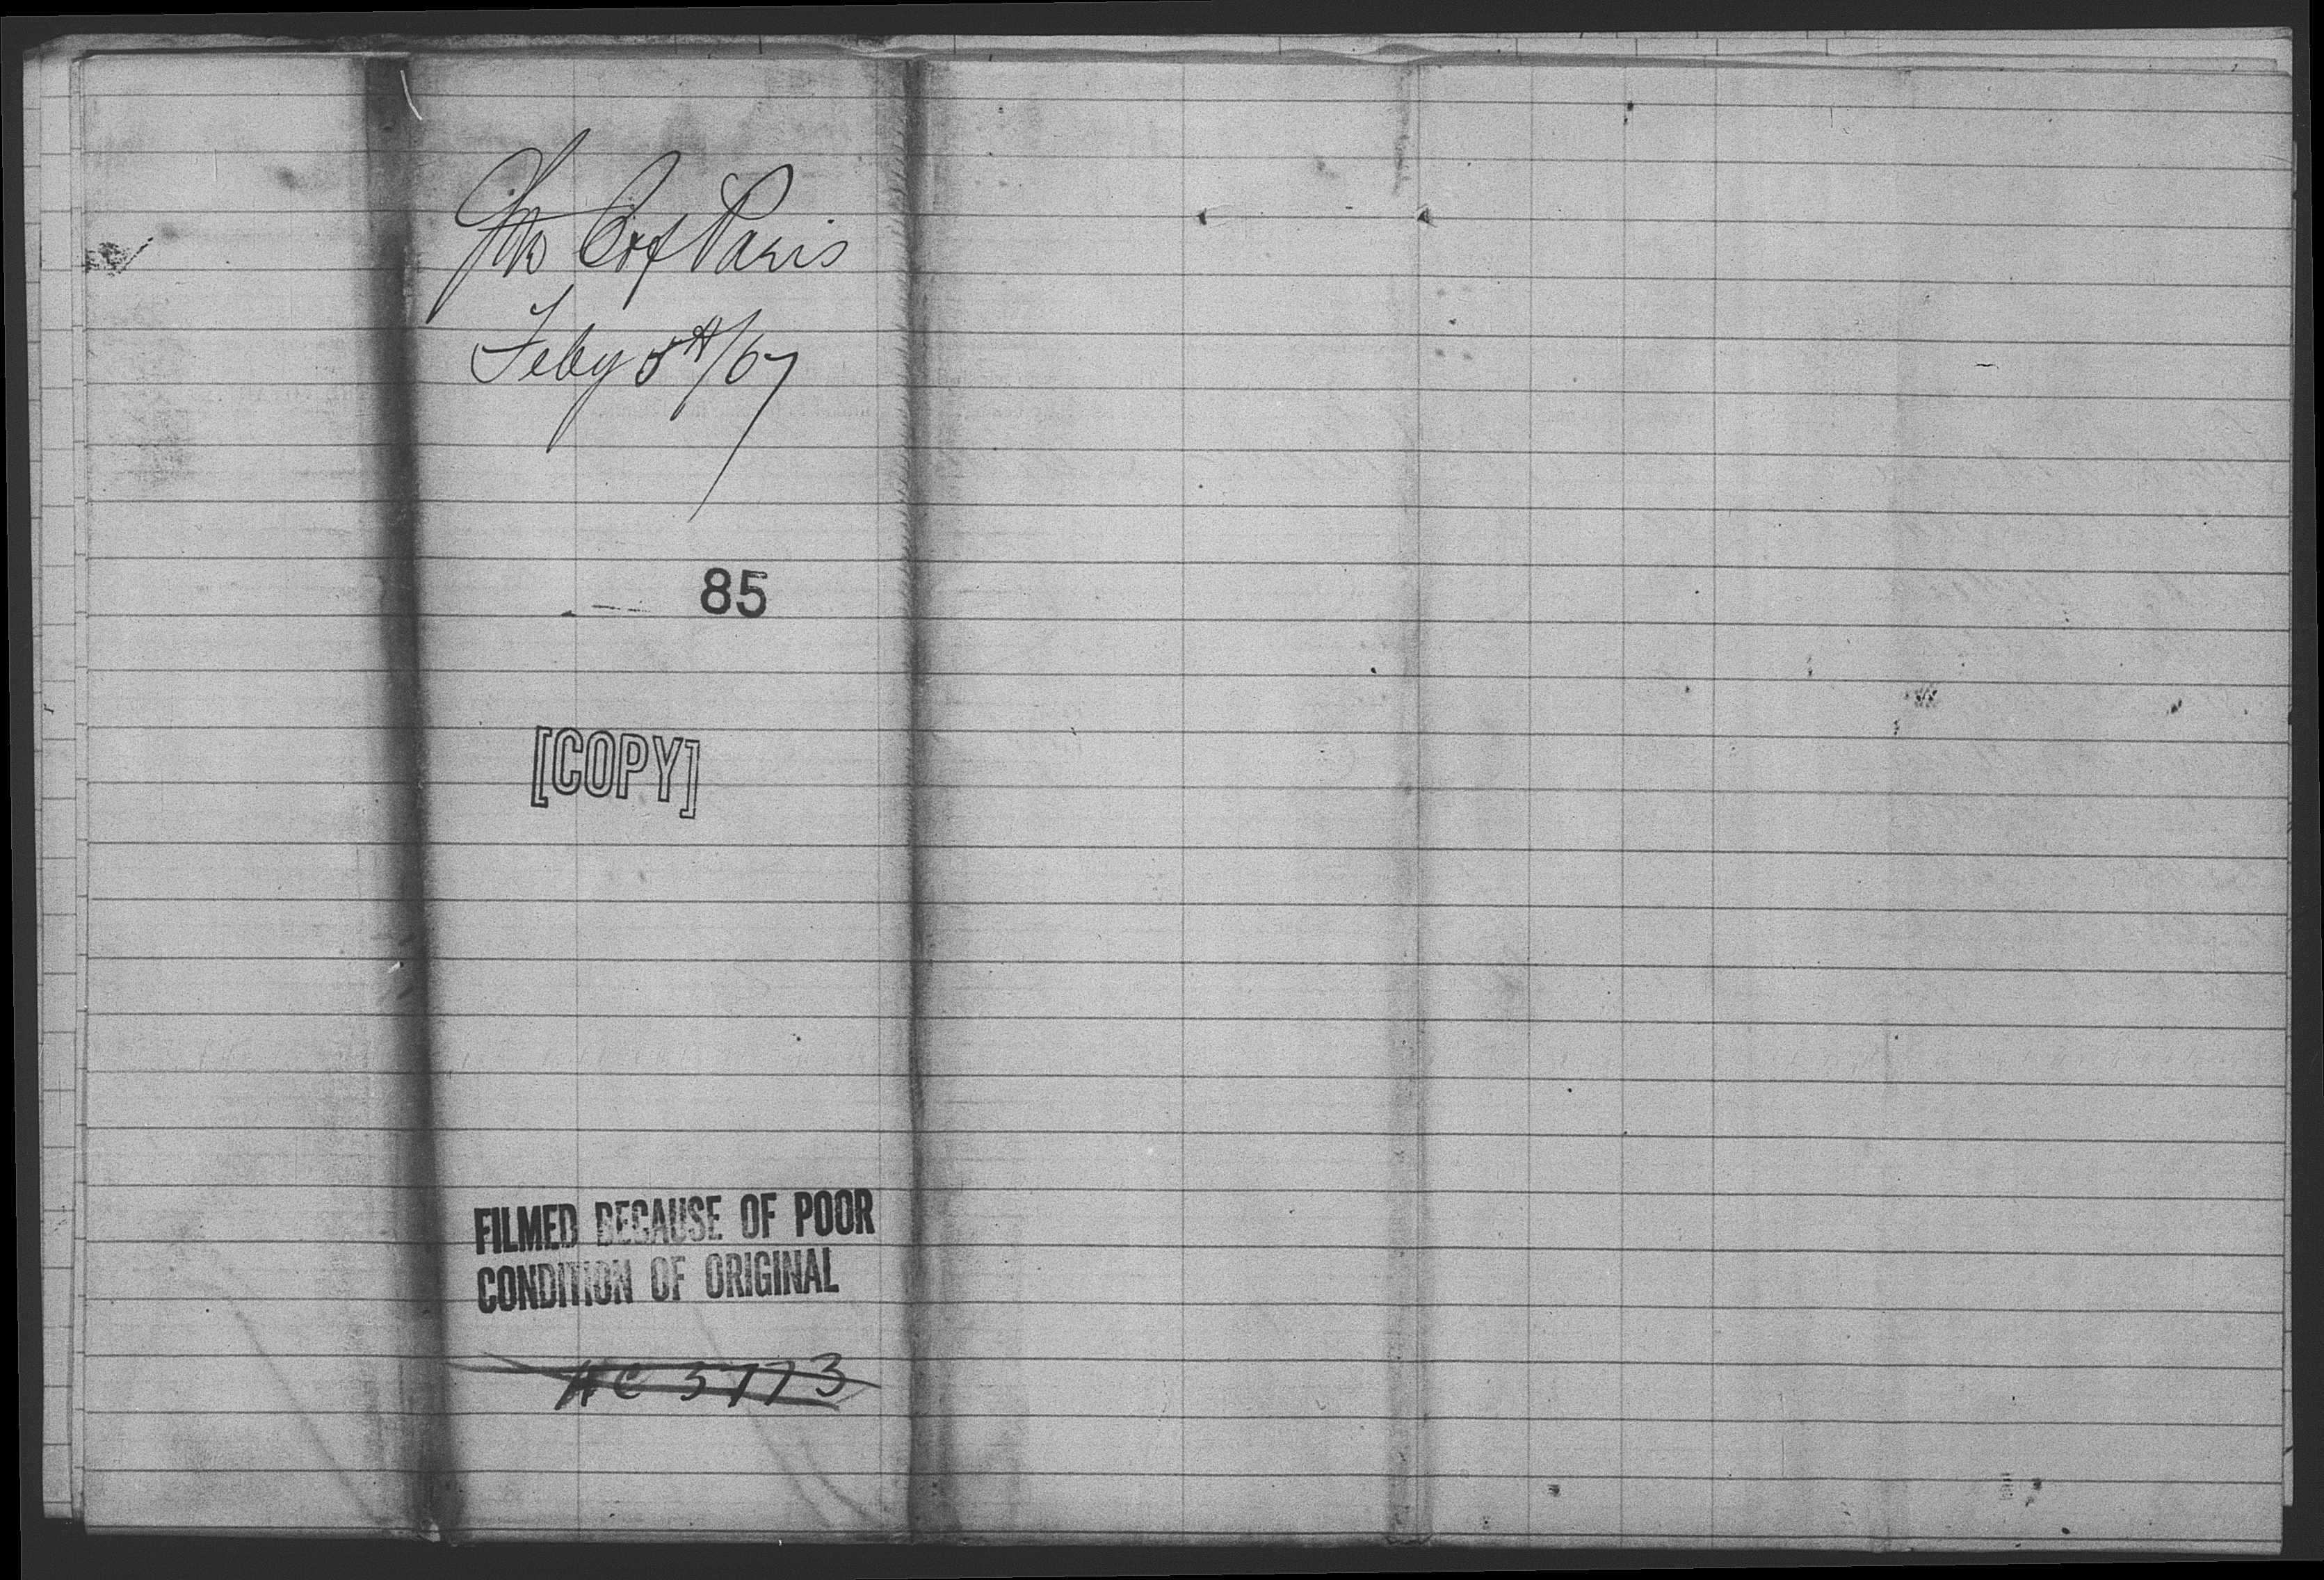 Cox Paris
Feby 5th/67
85
[COPY]
FILMED BECAUSE OF POOR
CONDITION OF ORIGINAL
HC 3773